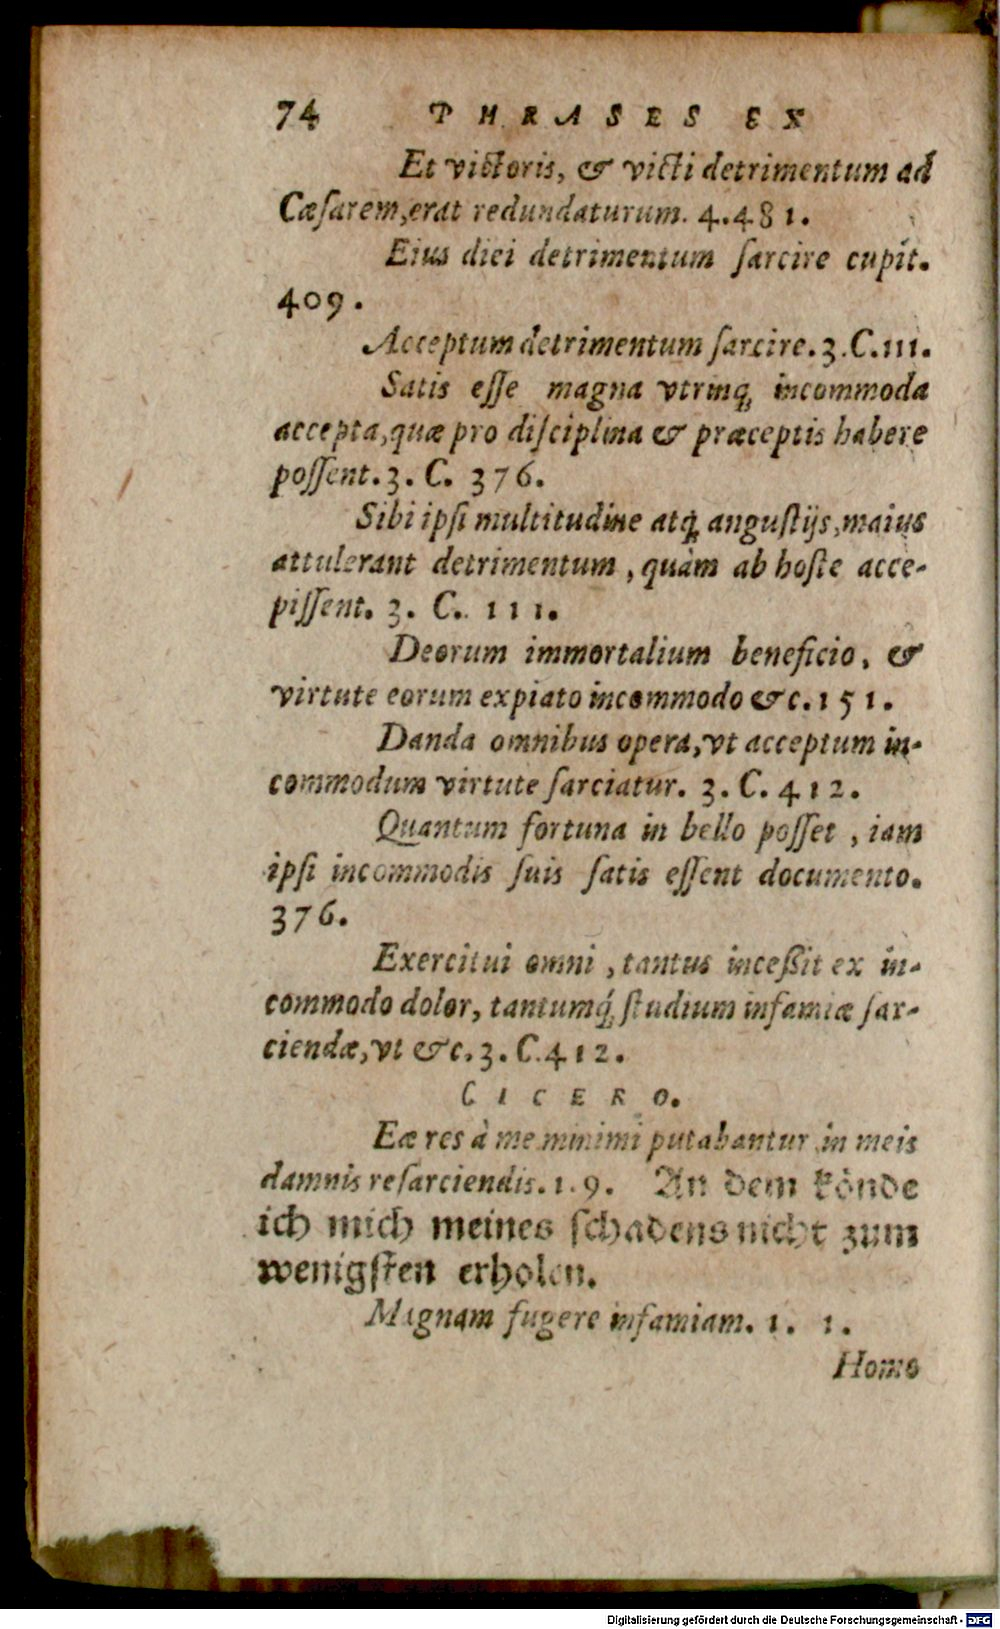 74 PHRASES EX
Et victoris, & victi detrimentum ad
Cæſarem, erat redundaturum. 4.481.
Eius diei detrimentum ſarcire cupit.
409.
Acceptum detrimentum ſarcire. 3.C.111.
Satis eſſe magna vtrinq; incommoda
accepta, quæ pro diſciplina & præceptis habere
poſſent. 3. C. 376.
Sibi ipſi multitudine atq; anguſtijs, maius
attulerant detrimentum, quàm ab hoſte acce-
piſſent. 3. C. 111.
Deorum immortalium beneficio, &
virtute eorum expiato incommodo &c. 151.
Danda omnibus opera, vt acceptum in-
commodum virtute ſarciatur. 3. C. 412.
Quantum fortuna in bello poſſet, iam
ipſi incommodis ſuis ſatis eſſent documento.
376.
Exercitui omni, tantus inceßit ex in-
commodo dolor, tantumq́; ſtudium infamiæ ſar-
ciendæ, vt &c. 3. C. 412.
CICERO.
Eæ res à me minimi putabantur in meis
damnis reſarciendis. 1. 9. An dem koͤnde
ich mich meines ſchadens nicht zum
wenigſten erholen.
Magnam fugere infamiam. 1. 1.
Homo
Digitalisierung gefördert durch die Deutsche Forschungsgemeinschaft - DFG